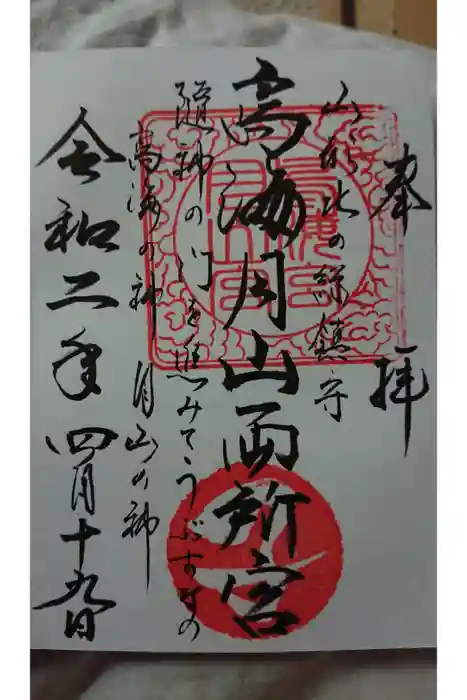 奉拝
山形北の総鎮守
鳥海月山両所宮
随神の門を進みてうぶすなの
鳥海の神 月山の神
令和二年四月十九日